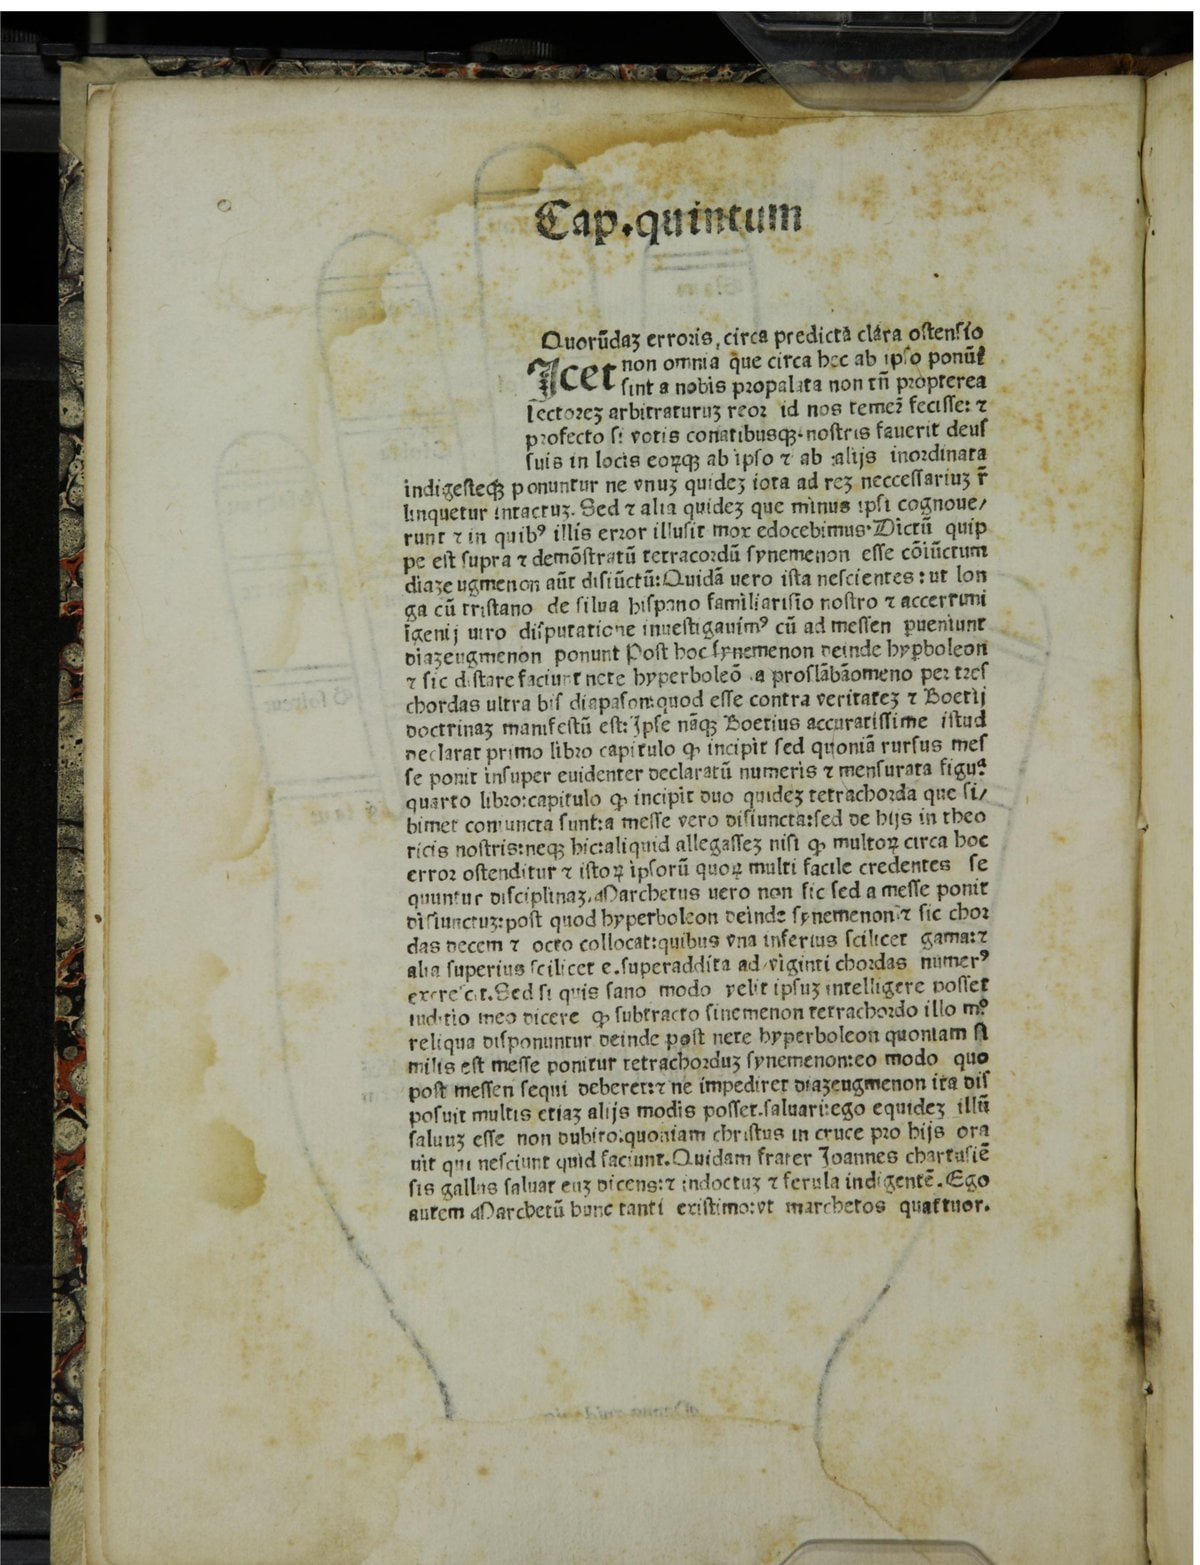 Cap.quintum
Quorūdaʒ erroris, circa predicta clara ostensio
Icet non omnia que circa hec ab ipso ponūt
sint a nobis propalata non tñ propterea
lectoreʒ arbitraturuʒ reor id nos temer̄ fecisse: ⁊
profecto si votis conatibusqʒ nostris fauerit deus
suis in locis eoꝝqʒ ab ipso ⁊ ab alijs inordinata
indigesteqʒ ponuntur ne vnuʒ quideʒ iota ad reʒ neccessariuʒ r̄
linquetur intactuʒ. Sed ⁊ alia quideʒ que minus ipsi cognoue/
runt ⁊ in quibꝰ illis error illusit mox edocebimus. Dictū quip
pe est supra ⁊ demōstratū tetracordū synemenon esse cōiūctum
diaze ugmenon aūt disiūctū: Quidā uero ista nescientes: ut lon
ga cū tristano de silua hispano familiarisīo nostro ⁊ accerrimi
īgenij uiro disputatione inuestigauimꝰ cū ad messen ꝑueniunt
diazeugmenon ponunt Post hoc synemenon deinde hyꝑboleon
⁊ sic distare faciunt nete hyperboleō a proslābāomeno per tres
chordas ultra bis diapason: quod esse contra veritateʒ ⁊ Boetij
doctrinaʒ manifestū est: Ipse nāqʒ Boetius accuratissime istud
declarat primo libro capitulo ꝙ incipit sed quoniā rursus mes
se ponit insuper euidenter declaratū numeris ⁊ mensurata figuᷓ.
quarto libro: capitulo ꝙ incipit duo quideʒ tetrachorda que si/
bimet coniuncta sunt: a messe vero disiuncta: sed de hijs in theo
ricis nostris: neqʒ hic: aliquid allegasseʒ nisi ꝙ multoꝝ circa hoc
error ostenditur ⁊ istoꝝ ipsorū quoꝝ multi facile credentes se
quuntur disciplinaʒ. Marchetus uero non sic sed a messe ponit
disiunctuʒ: post quod hyperboleon deinde synemenon: ⁊ sic chor
das decem ⁊ octo collocat: quibus vna inferius scilicet gama: ⁊
alia superius scilicet e. superaddita ad viginti chordas numerꝰ
excrescit. Sed si quis sano modo velit ipsuʒ intelligere posset
iuditio meo dicere ꝙ subtracto sinemenon tetrachordo illo mº
reliqua disponuntur deinde post nete hyperboleon quoniam si
milis est messe ponitur tetrachorduʒ synemenon: eo modo quo
post messen sequi deberet: ⁊ ne impediret diazeugmenon ita dis
posuit multis etiaʒ alijs modis posset. saluari: ego equideʒ illū
saluuʒ esse non dubito: quoniam christus in cruce pro hijs ora
uit qui nesciunt quid faciunt. Quidam frater Joannes chartusiē
sis gallus saluat euʒ dicens: ⁊ indoctuʒ ⁊ ferula indigentē. Ego
autem Marchetū hunc tanti existimo: vt marchetos quattuor.